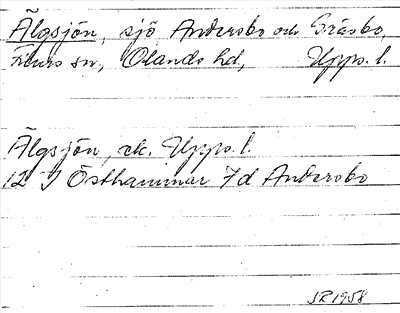 Älgsjön, sjö Andersbo och Gräsbo,
Films sn, Olands hd, Upps. l.
Älgsjön, ek. Upps. l.
12 I Östhammar 7d Andersbo
SR 1958